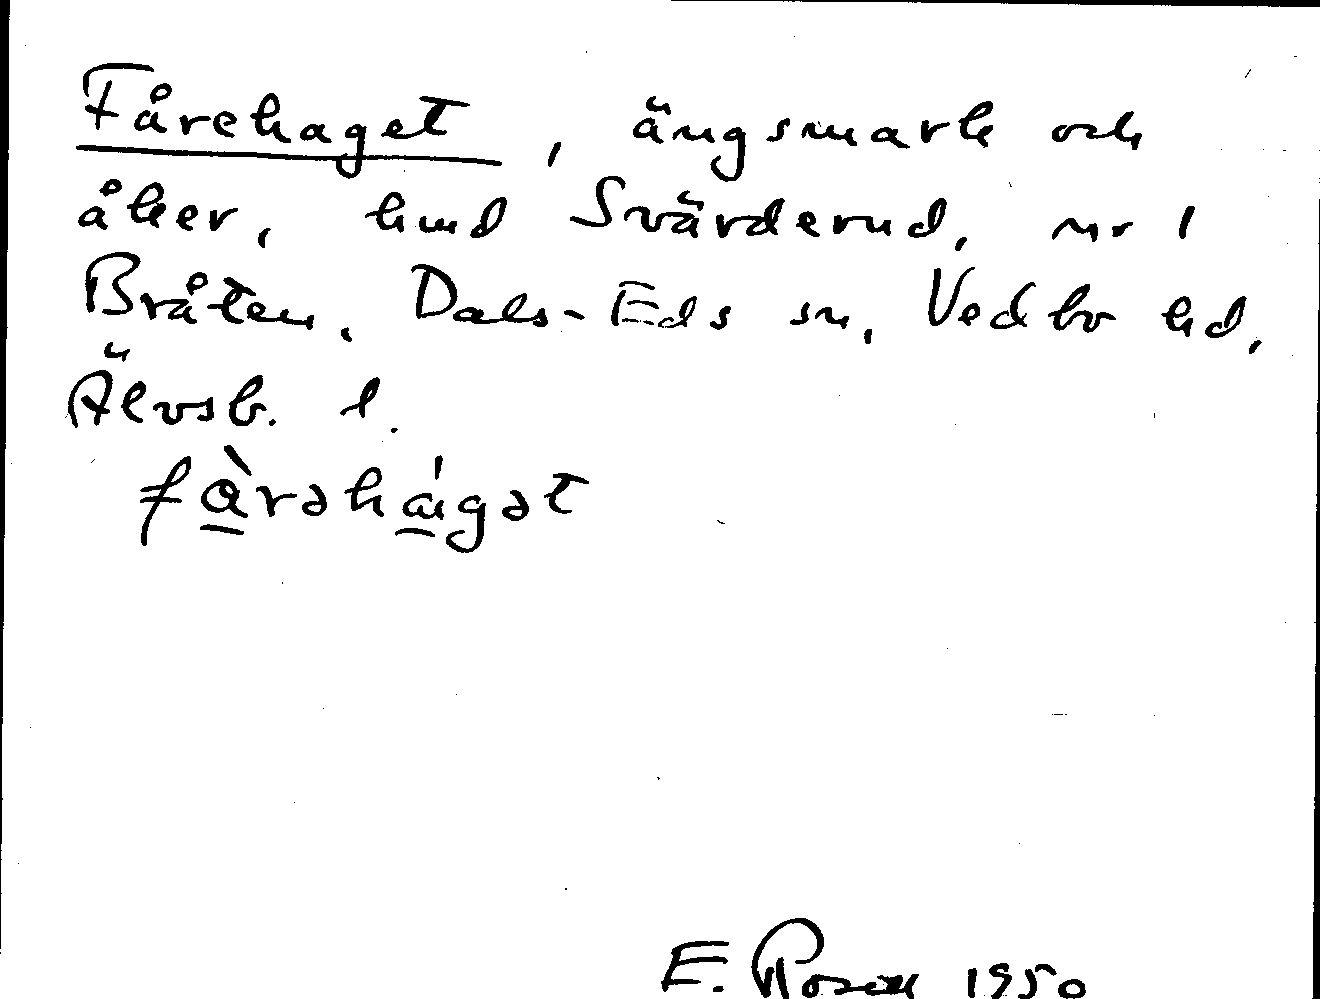 Fårehaget, ängsmark och
åker, hmd Svärderud, nr 1
Bråten, Dals-Eds sn, Vedbo hd,
Älvsb. l.
fàrəhágət
E. Rosén 1950